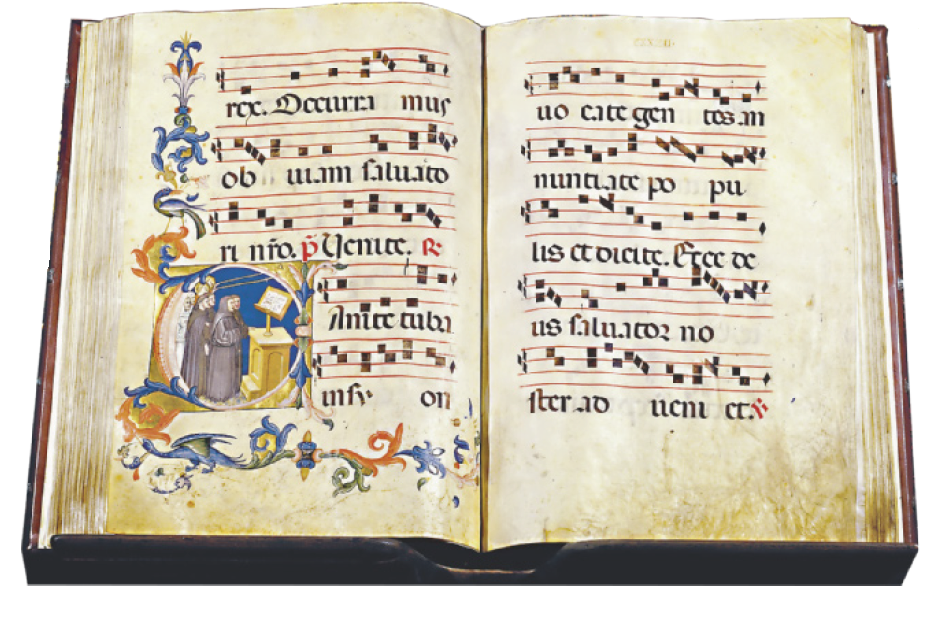 rex. Occurra mus
ob uiam saluato
ri nr̃o. p̃ Uenite. R
CAnite tuba
insy on
uo cate gen tes an
nuntiate po pu
lis et dicite. Ecce de
us saluator no
ster ad ueni et. V